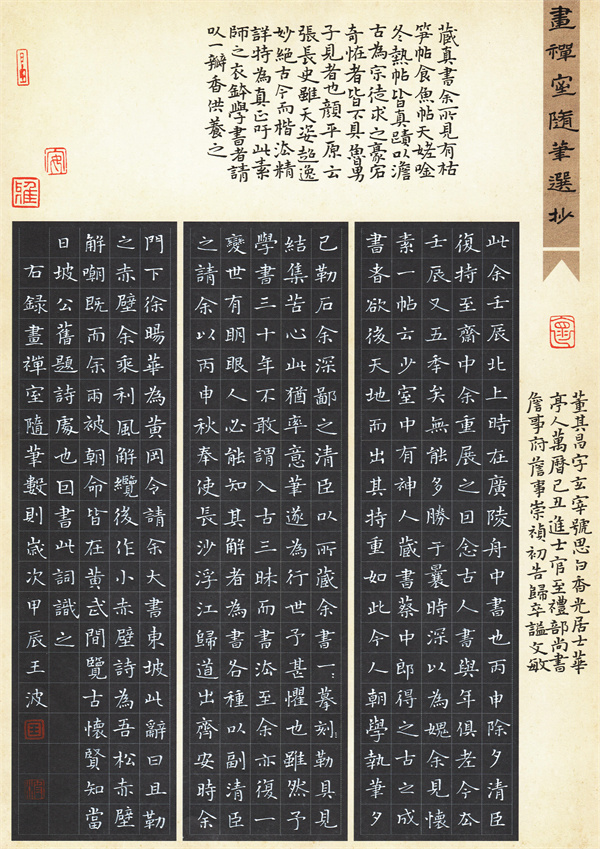 畫禪室隨筆選抄
藏真書余所見有枯
笋帖食魚帖天姥唫
冬熱帖皆真蹟以澹
古為宗徒求之豪宕
奇恠者皆不具魯男
子見者也顏平原云
張長史雖天姿超逸
妙絕古今而楷法精
詳特為真正吁此素
師之衣鉢學書者請
以一瓣香供養之
此余壬辰北上時在廣陵舟中書也丙申除夕清臣
復持至齋中余重展之因念古人書與年俱老今去
壬辰又五季矣無能多勝于曩時深以為媿余見懷
素一帖云少室中有神人藏書蔡中郎得之古之成
書者欲後天地而出其持重如此今人朝學執筆夕
已勒石余深鄙之清臣以所藏余書一一摹刻勒具見
結集苦心此猶率意筆遂為行世予甚懼也雖然予
學書三十年不敢謂入古三昧而書法至余亦復一
變世有眀眼人必能知其解者為書各種以副清臣
之請余以丙申秋奉使長沙浮江歸道出齊安時余
門下徐暘華為黃岡令請余大書東坡此辭曰且勒
之赤壁余乘利風解纜後作小赤壁詩為吾松赤壁
解嘲既而余兩被朝命皆在黃武間覽古懷賢知當
日坡公舊題詩處也因書此詞識之
右録畫禪室隨筆數則歲次甲辰王波
董其昌字玄宰號思白香光居士華
亭人萬曆己丑進士官至禮部尚書
詹事府詹事崇禎初告歸卒諡文敏